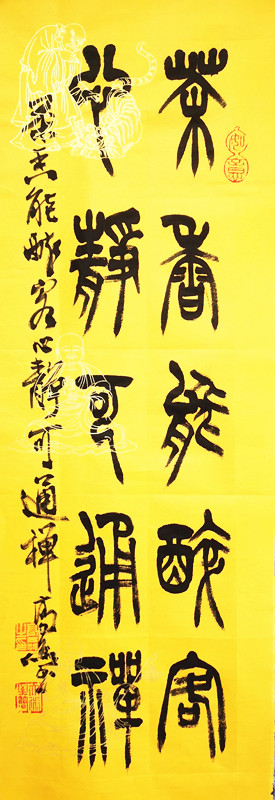 茶香能醉客
心静可通禅
茶香能醉客心静可通禅